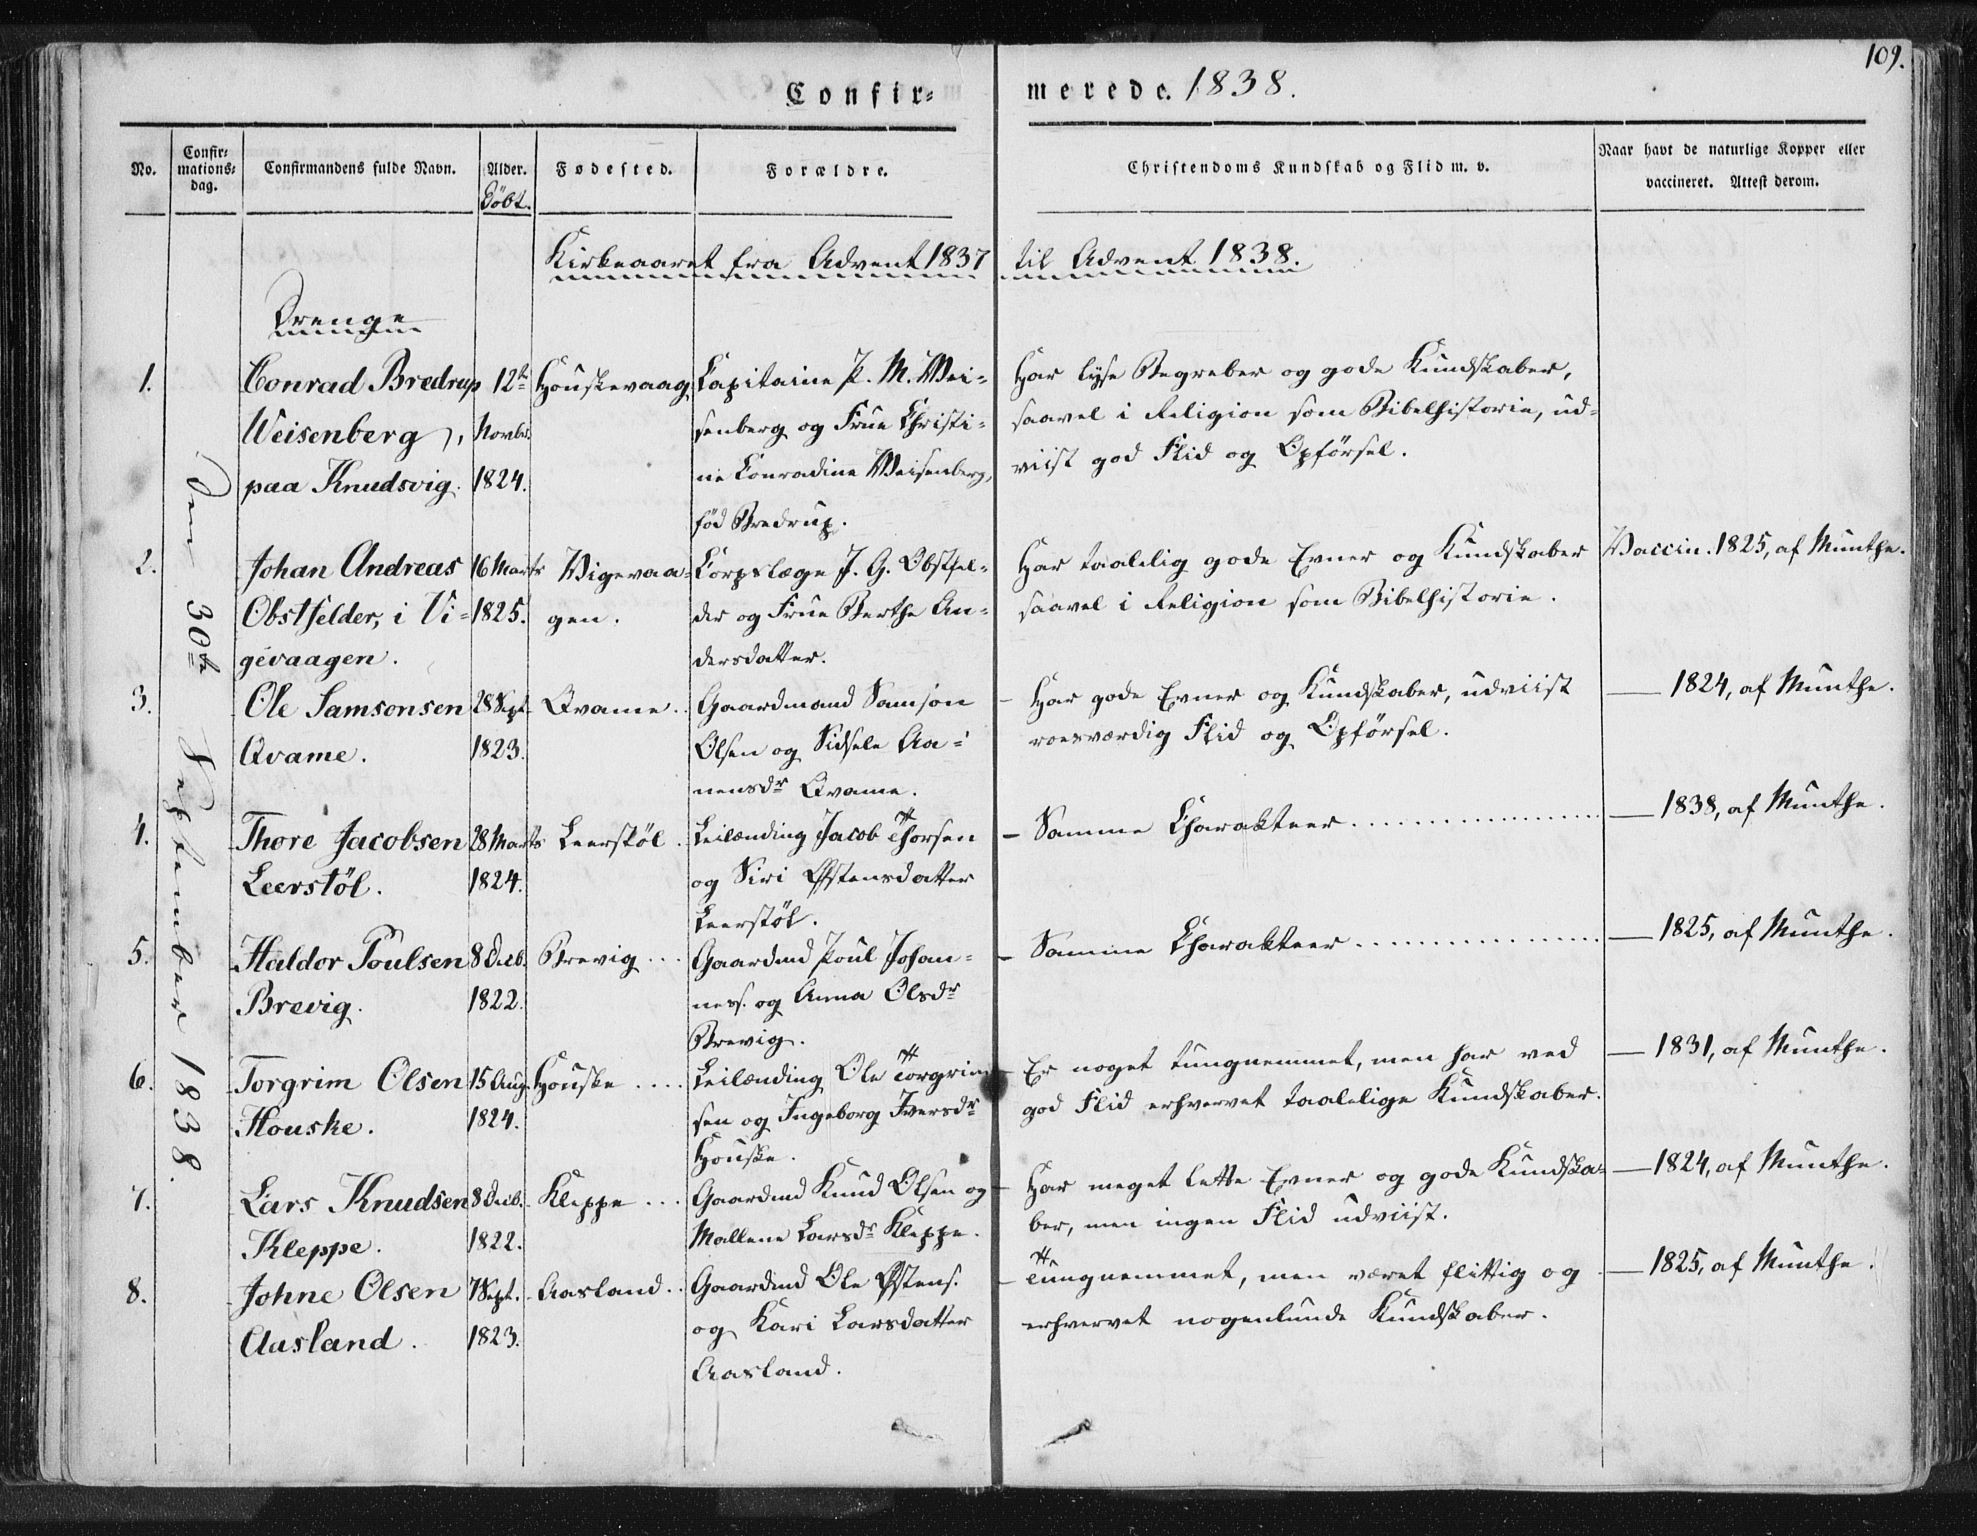 109.
Confir= merede. 1838.
No.
Confir=
mations=
dag.
Confirmandens fulde Navn.
Alder.
Døbt.
Fødested.
Forældre.
Christendoms Kundskab og Flid m. v.
Naar havt de naturlige Kopper eller
vaccineret. Attest derom.
Kirkeaaret fra Advent 1837 til Advent 1838.
Drenge
den 30te September 1838.
1. Conrad Bredrup 12te Houskevaag Capitaine P. M. Wei= Har lyse Begreber og gode Kundskaber,
Weisenberg, Novbr. senberg og Frue Christi= saavel i Religion som Bibelhistorie, ud=
paa Knudsvig. 1824. ne Conradine Weisenberg, viist god Flid og Opførsel.
fød Bredrup.
2. Johan Andreas 16 Marts Vigevaa= Corpslæge J. G. Obstfel= Har taalelig gode Evner og Kundskaber Vaccin. 1825, af Munthe.
Obstfelder, i Vi= 1825. gen. der og Frue Berthe An= saavel i Religion som Bibelhistorie.
gevaagen. dersdatter.
3. Ole Samsonsen 28 Sept. Qvame.. Gaardmand Samson - Har gode Evner og Kundskaber, udviist — 1824, af Munthe.
Qvame. 1823. Olsen og Sidsele Aa= roesværdig Flid og Opførsel.
nensdr Qvame.
4. Thore Jacobsen 28 Marts Leerstøl. Leilænding Jacob Thorsen - Samme Charakteer .................. — 1838, af Munthe.
Leerstøl. 1824. og Siri Østensdatter
Leerstøl.
5. Haldor Poulsen 8 Decb. Brevig... Gaardmd Poul Johan= - Samme Charakteer .................. — 1825, af Munthe.
Brevig. 1822. ness. og Anna Olsdr
Brevig.
6. Torgrim Olsen 15 Aug. Houske .... Leilænding Ole Torgrim - Er noget tungnemmet, men har ved — 1831, af Munthe.
Houske. 1824. sen og Ingeborg Iversdr god Flid erhvervet taalelige Kundskaber.
Houske.
7. Lars Knudsen 8 Decb. Kleppe ... Gaardmd Knud Olsen og - Har meget lette Evner og gode Kundska= — 1824, af Munthe.
Kleppe. 1822. Mallene Larsdr Kleppe. ber, men ingen Flid udviist.
8. Johne Olsen 7 Sept. Aasland.. Gaardmd Ole Østens. - Tungnemmet, men været flittig og — 1825, af Munthe.
Aasland. 1823. og Kari Larsdatter erhvervet nogenlunde Kundskaber.
Aasland.